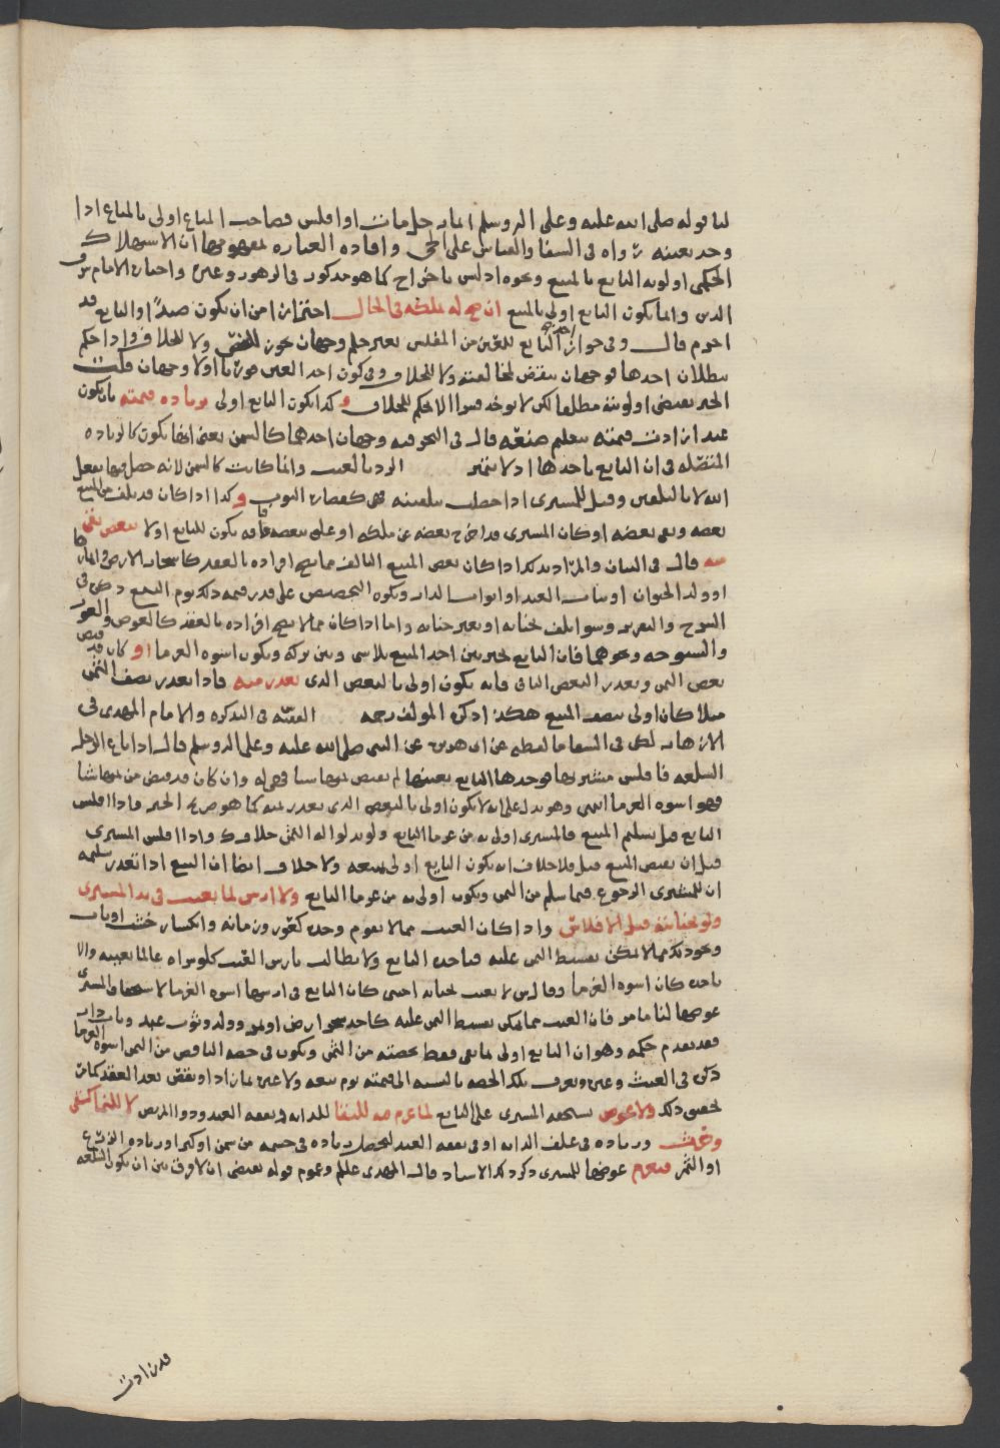 لنا قوله صلى الله عليه وعلى اله وسلم ايما رجل مات او افلس فصاحب المتاع اولى بالمتاع اذا
وجده بعينه رواه في الشفا والقياس على الحي وافاده العباره لمفهومها ان الاستهلاك
الحكمي اولويه البايع بالمبيع ونحوه اذ ليس باخراج كما هو مذكور في الزهور وغيره واختاره الامام شرف
الدين وانما يكون البايع اولى بالمبيع ان صح له ملكه في الحال احترازا من ان يكون صيدا والبايع قد
احرم قال وفي جواز اخذ البايع للعين من المفلس بغير حكم وجهان يجوز للنص ولا للخلاف واذا حكم
ببطلان اخذها فوجهان ينقض لمخالفته ولا للخلاف وفي كون اخذ العين فورا او لا وجهان قلت
الخبر يقتضي اولويته مطلقا لكن لا يوخذ فورا الا بحكم للخلاف و كذا يكون البايع اولى بزياده قيمته بان يكون
عبد ازادت قيمته بتعليم صنعه قال في البحر فيه وجهان احدهما كالسمن يعني انها يكون كالزياده
المتصله في ان البايع ياخذها اذ لا يتميز الرد بالعيب وانما كانت كالسمن لانه حصل فيها بفعل
الله لا بالتلقين وقيل للمشتري اذا حصلت بتلقينه فهي كقصارة الثوب و كذا اذا كان قد تلف من المبيع
بعضه وبقي بعضه او كان المشتري قد اخرج بعضه عن ملكه او على بعضه فانه يكون للبايع اولا ببعض بقي
منه قال في البيان والمراد بذلك اذا كان بعض المبيع التالف مما يصح افراده بالعقد كاشجار الارض والثمار
او ولد الحيوان او ثياب العبد او ابواب الدار ونحوه التخصيص على قدر قيمه ذلك يوم البيع ذكره في
الشرح والتقرير وسوا تلف بجنايه او بغير جنايه واما اذا كان مما لا يصح افراده بالعقد كالعرض والعور
والشيوخه ونحوهما فان البايع يخير بين اخذ المبيع بلا شي وبين تركه ويكون اسوه الغرما او كان قد قبض
بعض الثمن وتعذر البعض الباقي فانه يكون اولى بالبعض الذي تعذر ثمنه فاذا تعذر نصف الثمن
مثلا كان اولى بنصف المبيع هكذا ذكره المولف رحمه الفقيه في التذكره والامام المهدي في
الازهار لكن في الشفا ما لفظه عن ابي هريره عن النبي صلى الله عليه وعلى اله وسلم قال اذا باع الرجل
السلعه فافلس مشتريها فوجدها البايع بعينها لم يقبض من ثمنها شيا فهي له وان كان قد قبض من ثمنها شيا
فهو اسوه الغرما انتهى وهو يدل على انه لا يكون اولى بالبعض الذي تعذر ثمنه كما هو صريح الخبر واذا افلس
البايع قبل تسليم المبيع فالمشتري اولى به من غرما البايع ولو بدلوا له الثمن خلاف ك واذا افلس المشتري
قبل ان يقبض المبيع قيل فلا خلاف انه يكون البايع اولى ببيعه ولا خلاف ايضا ان المبيع اذا تعذر تسليمه
ان للمشتري الرجوع فيما سلم من الثمن ويكون اولى به من غرما البايع ولا ارش لما تعيب في يد المشتري
ولو بجنايته قبل الافلاس واذا كان العيب مما لا يقوم وحده كعور وزمانه وانكسار خشب او باب
ونحو ذلك مما لا يمكن تقسيط الثمن عليه فياخذه البايع ولا يطالب بارش العيب كلو شراه عالما بعيبه والا
ياخذه كان اسوه الغرما وقال ش لا تعيب بجنايه اجنبي كان البايع في ارشها اسوه الغرما لاستحقاق المشتري
عوضها لنا ما مر فان العيب مما يمكن تقسيط الثمن عليه كاحد شجر ارض او ثمر وولد وثوب عبد وباب دار
فقد تقدم حكمه وهو ان البايع اولى بما بقي فقط بحصته من الثمن ويكون في حصه الناقص من الثمن اسوه الغرما
ذكره في الغيث وغيره ويعرف تلك الحصه بالنسبه الى قيمته يوم بيعه ولا عبره بما زاد او نقص بعد العقد كما
تحقق ذلك ولا عوض يستحقه المشتري على البايع لما غرم فيه للبقا للدابه ونفقه العبد ودوا المريض لا للنما كسقي
وحرث وزياده في علف الدابه او في نفقه العبد لتحصل زياده في جسمه من سمن او كبر او زياده الزرع
او الثمر فيغرم عوضها للمشتري ذكر ذلك الاستاد قال المهدي عليلم وعموم قوله يقتضي ان لا فرق بين ان يكون السلعه
قد زادت